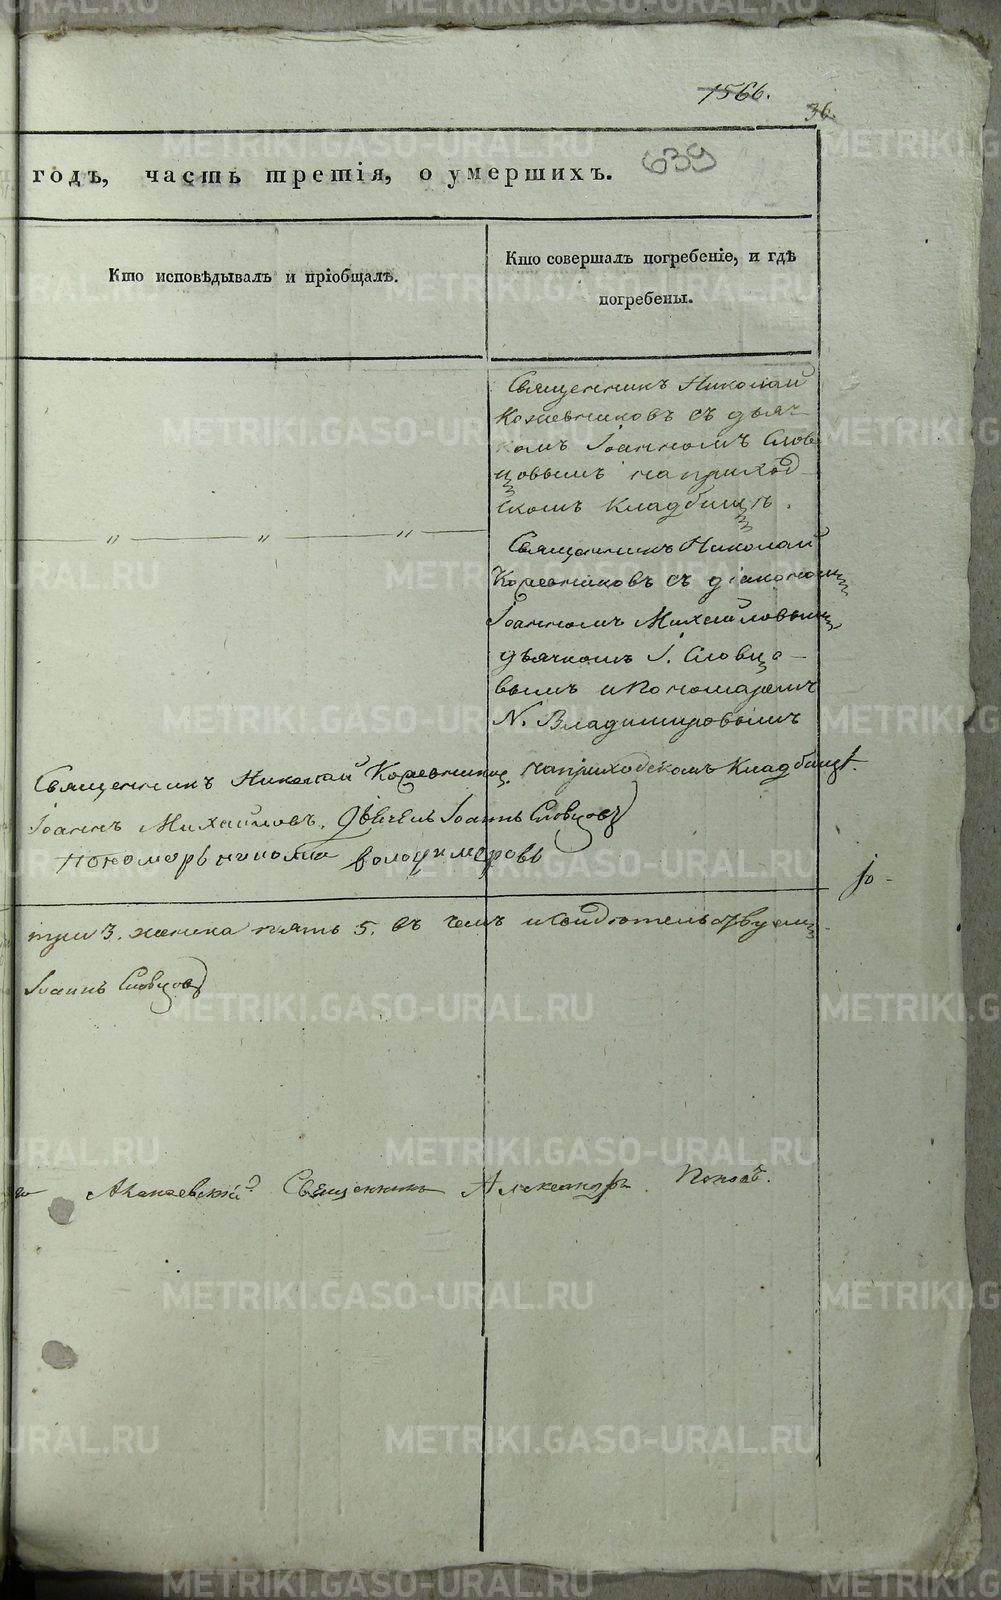 1566.
36.
639
годъ, часть третія, о умершихъ.
Кто исповѣдывалъ и пріобщалъ.
Кто совершалъ погребеніе, и гдѣ
погребены.
Священникъ Николай
Кожевниковъ съ дьяч
комъ Іоанномъ Слов
цовымъ на приход
скомъ кладбищѣ.
— " — " — " —
Священникъ Николай
Кожевниковъ съ діакономъ
Іоанномъ Михайловымъ
дьячкомъ І. Словцо-
вымъ и пономаремъ
N. Владимировымъ
на приходскомъ кладбищѣ.
Священникъ Николай Кожевников
Іоаннъ Михайловъ. Дьячекъ Іоаннъ Словцовъ
Пономарь никола володимеровъ
три 3. женска пять 5. въ чемъ и свидѣтельствуемъ
Іоаннъ Словцовъ
Священникъ Александръ Поповъ.
METRIKI.GASO-URAL.RU